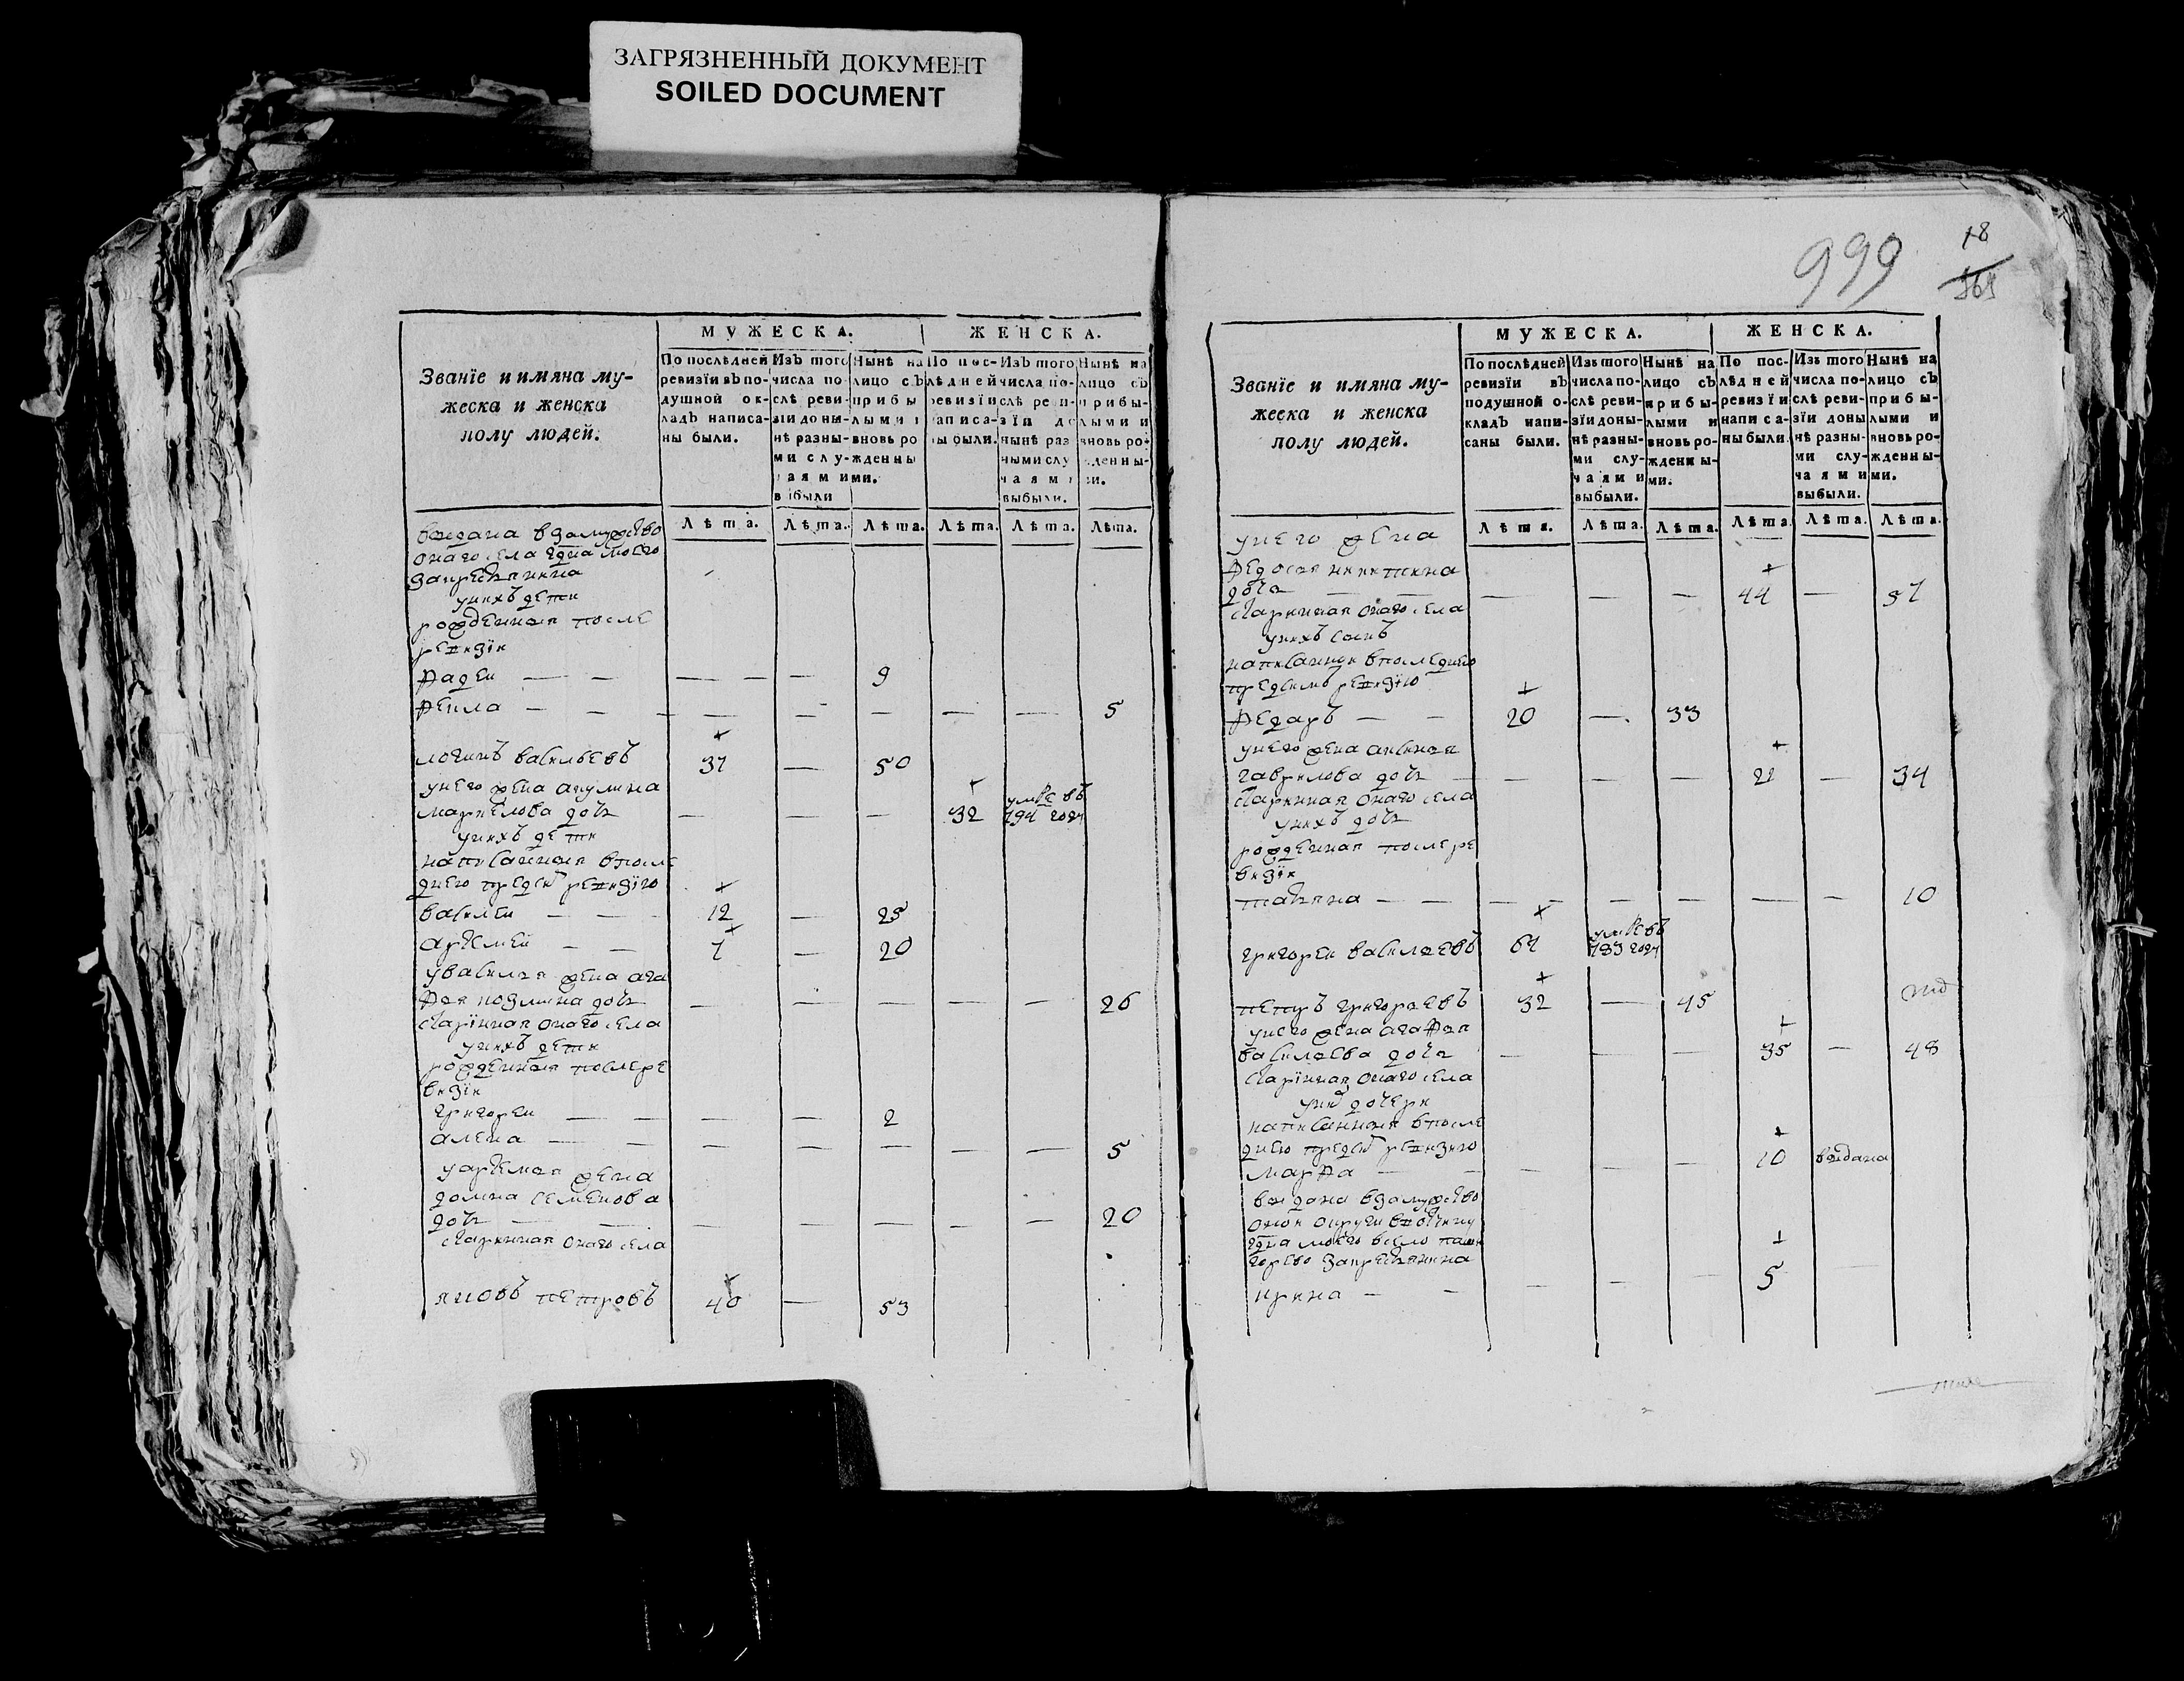 ЗАГРЯЗНЕННЫЙ ДОКУМЕНТ
SOILED DOCUMENT
МУЖЕСКА. ЖЕНСКА.
Званїе и имяна му-
жеска и женска
полу людей.
По послѣдней ревизїи въ по-душной ок-ладъ написа-ны были.
Изъ того числа по-слѣ реви-зіи доны-нѣ разны-ми слу-чаями выбыли
Нынѣ на лицо съ прибы лыми и вновь ро жденны ми.
По пос-лѣдней ревизіи написа-ны были.
Изъ того числа по-слѣ реви-зїи до нынѣ раз ными слу чаями выбыли.
Нынѣ на лицо съ прибы-лыми и вновь ро-жденны-ми.
Лѣта. Лѣта. Лѣта. Лѣта. Лѣта. Лѣта.
выдана взамужство
онаго села
унихъ дети
рожденныя после
ревизїи
Фадеи — — — — 9
Фекла — — — — — — — — 5
логинъ васильевъ 37 — 50
унего жена акулина
маркелова дочь — — — 32 умре въ 794 году
унихъ дети
написанныя впосле
днею пред сим ревизїю
василеи — — 12 — 25
артемеи — — 7 — 20
увасилья жена ага
фья козмина дочь — — — — — 26
старїнная онаго села
унихъ дети
рожденныя послере
визїи
григореи — — — — 2
алена — — — — — — — 5
уартемья жена
домна семенова
дочь — — — — — — — 20
старинная онаго села
яковъ петровъ 40 — 53
999
18
МУЖЕСКА. ЖЕНСКА.
Званїе и имяна му-
жеска и женска
полу людей.
По послѣдней ревизїи въ подушной о-кладъ напи-саны были.
Изъ того числа по-слѣ реви-зїи доны-нѣ разны-ми слу-чаями выбыли.
Нынѣ на лицо съ прибы-лыми и вновь ро-жденны-ми.
По пос-лѣдней ревизїи написа-ны были.
Изъ того числа по-слѣ реви-зїи доны нѣ разны-ми слу-чаями выбыли.
Нынѣ на лицо съ прибы-лыми и вновь ро-жденны-ми.
Лѣта. Лѣта. Лѣта. Лѣта. Лѣта. Лѣта.
унего жена
федосья никитина
дочь — — — — — 44 — 57
старинная онаго села
унихъ сынъ
написаннои впоследнею
предсимъ ревизїю
федаръ — — 20 — 33
унего жена аксинья
гаврилова дочь — — — — 21 — 34
старинная онаго села
унихъ дочь
рожденная послере
визїи
татьяна — — — — — — — 10
григореи васильевъ умре въ 793 году
петръ григорьевъ 32 — 45
унего жена агафья
васильева дочь — — — 35 — 48
старїнная онаго села
уних дочери
написанныя впосле
днею предсим ревизию
марфа — — — — — 10 выдана
выдана взамужство
онои округи вотчину
ирина — — — — — 5 —